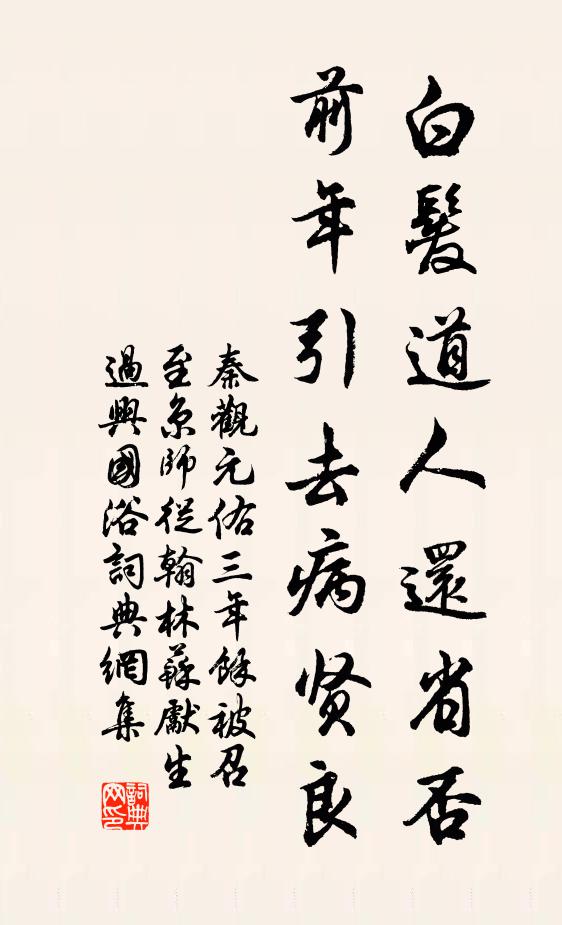 白髮道人還省否
前年引去病贤良
秦觀元佑三年餘被召
至京師從翰林蘇獻生
過興國浴詞典網集
詞典
网印